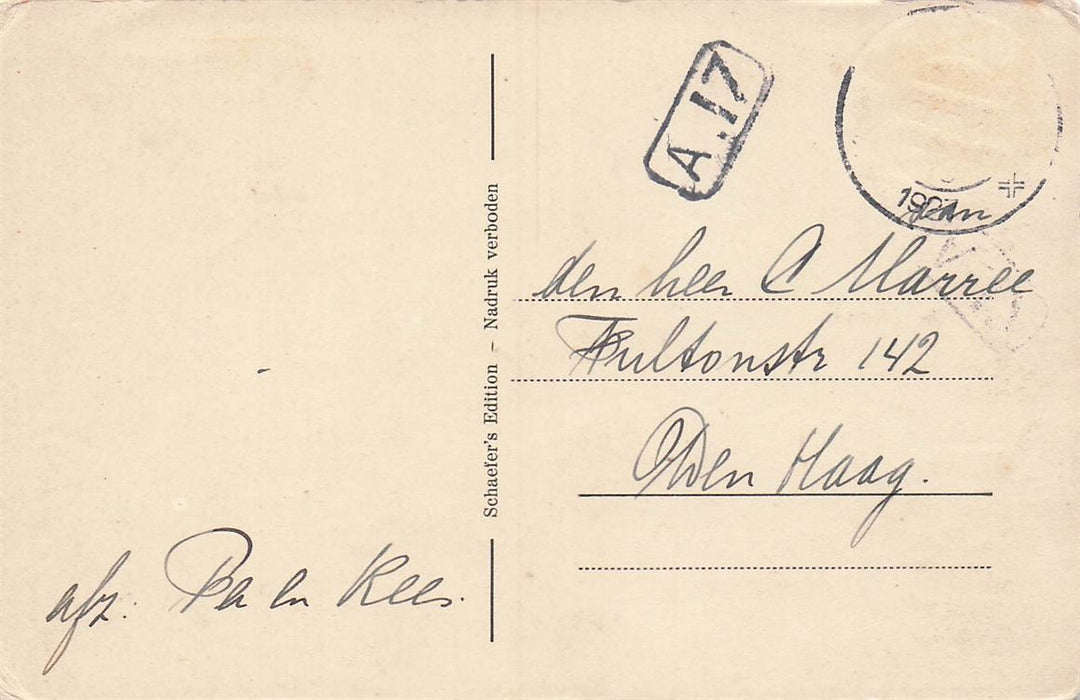 A.17
Aan
den heer C Marree
Fultonstr 142
Den Haag.
Schaefer's Edition – Nadruk verboden
afz. Pa en Kees.